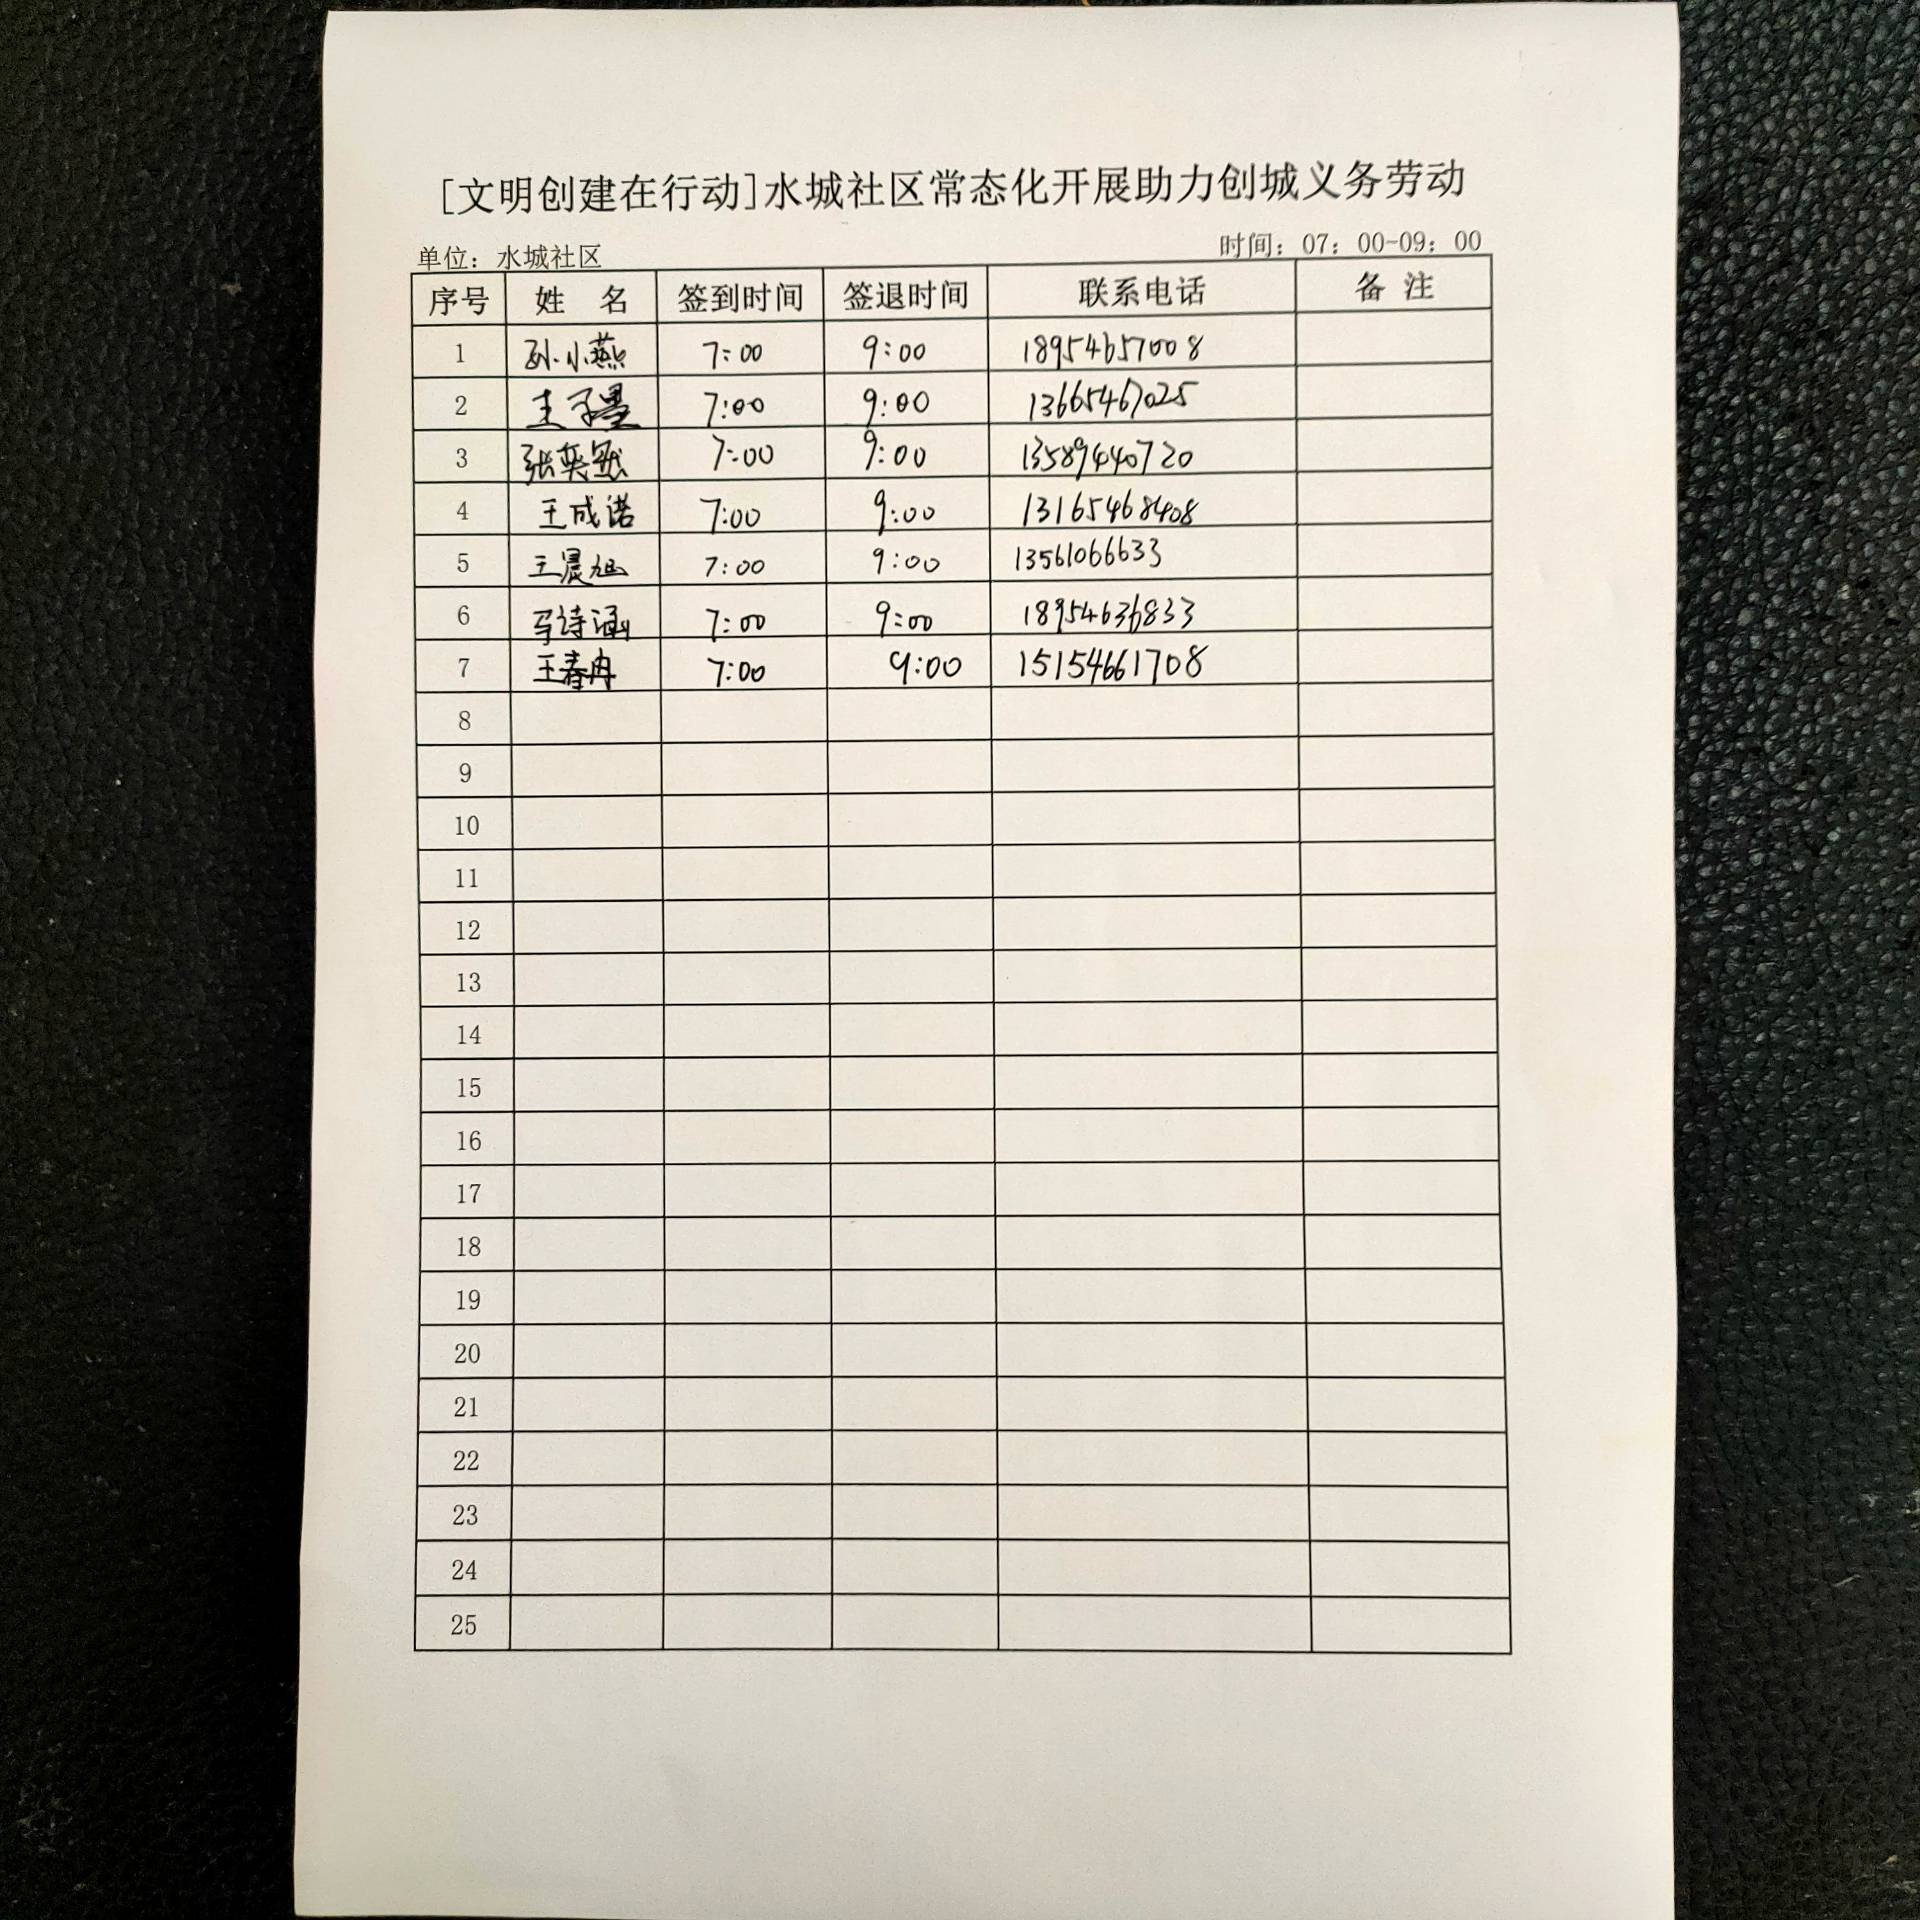 [文明创建在行动]水城社区常态化开展助力创城义务劳动
单位：水城社区 时间：07：00-09：00
序号 姓 名 签到时间 签退时间 联系电话 备 注
1 孙小燕 7:00 9:00 18954657008
2 王子墨 7:00 9:00 13665467025
3 张奕 7:00 9:00 13589440720
4 王成诺 7:00 9:00 13165468408
5 王晨旭 7:00 9:00 13561066633
6 马诗涵 7:00 9:00 18954636833
7 王春冉 7:00 9:00 15154661708
8
9
10
11
12
13
14
15
16
17
18
19
20
21
22
23
24
25